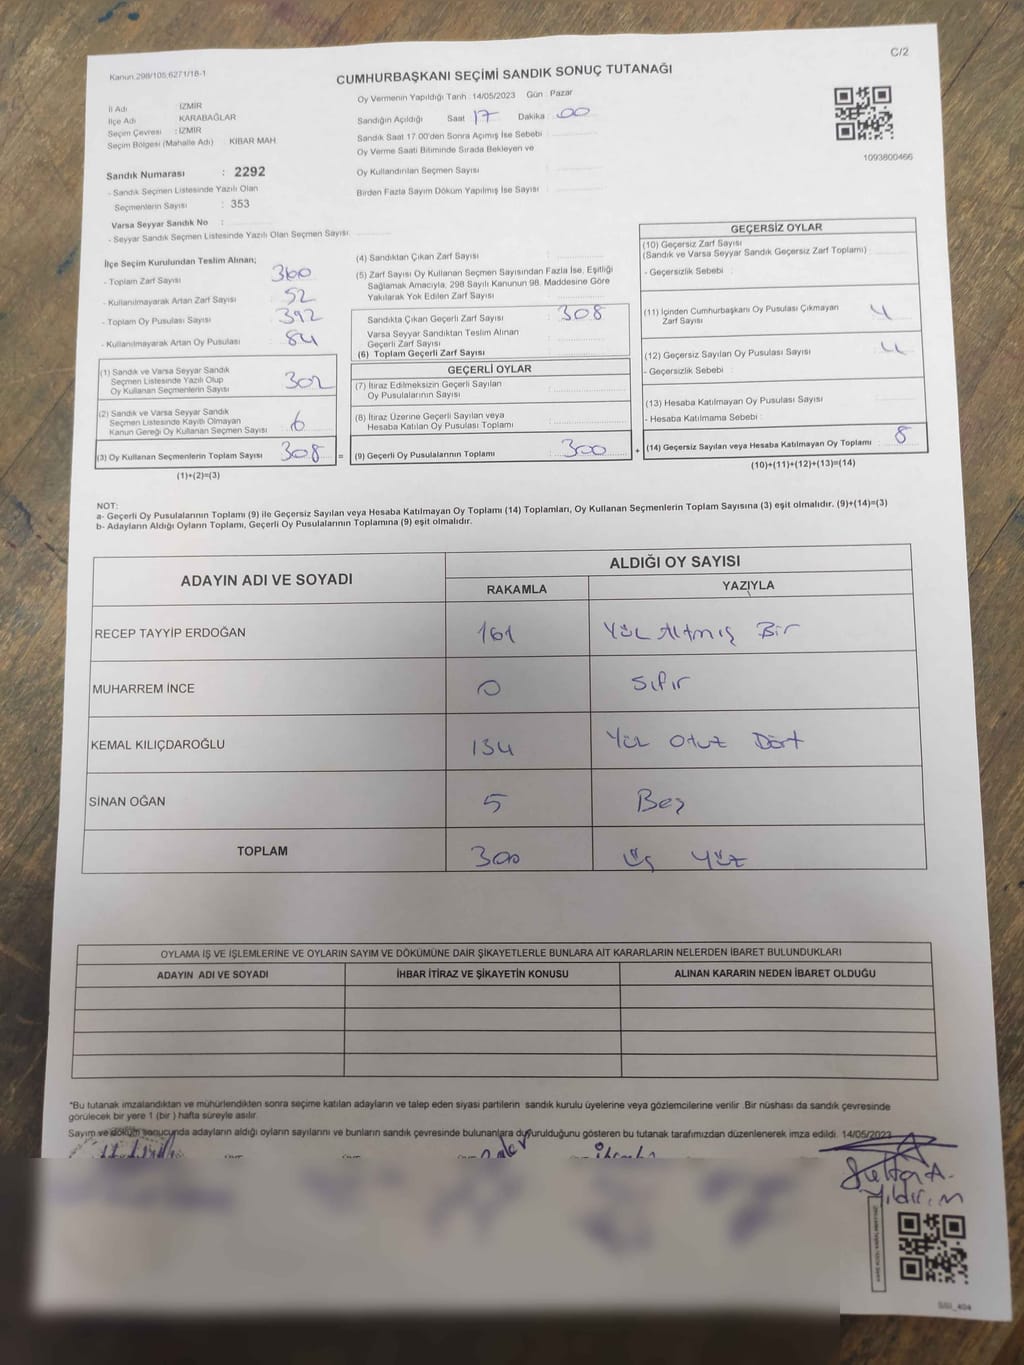 C/2
Kanun:298/105;6271/18-1
CUMHURBAŞKANI SEÇİMİ SANDIK SONUÇ TUTANAĞI
İl Adı : İZMİR
İlçe Adı KARABAĞLAR
Seçim Çevresi : İZMİR
Seçim Bölgesi (Mahalle Adı) : KIBAR MAH
Sandık Numarası : 2292
- Sandık Seçmen Listesinde Yazılı Olan
Seçmenlerin Sayısı : 353
Varsa Seyyar Sandık No :
- Seyyar Sandık Seçmen Listesinde Yazılı Olan Seçmen Sayısı:
Oy Vermenin Yapıldığı Tarih : 14/05/2023 Gün : Pazar
Sandığın Açıldığı Saat : 17 Dakika : 00
Sandık Saat 17:00'den Sonra Açımış İse Sebebi :
Oy Verme Saati Bitiminde Sırada Bekleyen ve
Oy Kullandırılan Seçmen Sayısı :
Birden Fazla Sayım Döküm Yapılmış İse Sayısı :
1093800466
İlçe Seçim Kurulundan Teslim Alınan;
- Toplam Zarf Sayısı : 360
- Kullanılmayarak Artan Zarf Sayısı : 52
- Toplam Oy Pusulası Sayısı : 392
- Kullanılmayarak Artan Oy Pusulası : 84
(1) Sandık ve Varsa Seyyar Sandık
Seçmen Listesinde Yazılı Olup
Oy Kullanan Seçmenlerin Sayısı : 302
(2) Sandık ve Varsa Seyyar Sandık
Seçmen Listesinde Kayıtlı Olmayan
Kanun Gereği Oy Kullanan Seçmen Sayısı : 6
(3) Oy Kullanan Seçmenlerin Toplam Sayısı : 308 =
(1)+(2)=(3)
(4) Sandıktan Çıkan Zarf Sayısı :
(5) Zarf Sayısı Oy Kullanan Seçmen Sayısından Fazla İse, Eşitliği
Sağlamak Amacıyla, 298 Sayılı Kanunun 98. Maddesine Göre
Yakılarak Yok Edilen Zarf Sayısı :
Sandıkta Çıkan Geçerli Zarf Sayısı : 308
Varsa Seyyar Sandıktan Teslim Alınan
Geçerli Zarf Sayısı :
(6) Toplam Geçerli Zarf Sayısı :
GEÇERLİ OYLAR
(7) İtiraz Edilmeksizin Geçerli Sayılan
Oy Pusulalarının Sayısı :
(8) İtiraz Üzerine Geçerli Sayılan veya
Hesaba Katılan Oy Pusulası Toplamı :
(9) Geçerli Oy Pusulalarının Toplamı : 300 +
GEÇERSİZ OYLAR
(10) Geçersiz Zarf Sayısı
(Sandık ve Varsa Seyyar Sandık Geçersiz Zarf Toplamı) :
- Geçersizlik Sebebi :
(11) İçinden Cumhurbaşkanı Oy Pusulası Çıkmayan
Zarf Sayısı : 4
(12) Geçersiz Sayılan Oy Pusulası Sayısı : 4
- Geçersizlik Sebebi :
(13) Hesaba Katılmayan Oy Pusulası Sayısı :
- Hesaba Katılmama Sebebi :
(14) Geçersiz Sayılan veya Hesaba Katılmayan Oy Toplamı : 8
(10)+(11)+(12)+(13)=(14)
NOT:
a- Geçerli Oy Pusulalarının Toplamı (9) ile Geçersiz Sayılan veya Hesaba Katılmayan Oy Toplamı (14) Toplamları, Oy Kullanan Seçmenlerin Toplam Sayısına (3) eşit olmalıdır. (9)+(14)=(3)
b- Adayların Aldığı Oyların Toplamı, Geçerli Oy Pusulalarının Toplamına (9) eşit olmalıdır.
ADAYIN ADI VE SOYADI
ALDIĞI OY SAYISI
RAKAMLA YAZIYLA
RECEP TAYYİP ERDOĞAN 161 Yüz Altmış Bir
MUHARREM İNCE 0 Sıfır
KEMAL KILIÇDAROĞLU 134 Yüz Otuz Dört
SİNAN OĞAN 5 Beş
TOPLAM 300 Üç Yüz
OYLAMA İŞ VE İŞLEMLERİNE VE OYLARIN SAYIM VE DÖKÜMÜNE DAİR ŞİKAYETLERLE BUNLARA AİT KARARLARIN NELERDEN İBARET BULUNDUKLARI
ADAYIN ADI VE SOYADI İHBAR İTİRAZ VE ŞİKAYETİN KONUSU ALINAN KARARIN NEDEN İBARET OLDUĞU
*Bu tutanak imzalandıktan ve mühürlendikten sonra seçime katılan adayların ve talep eden siyasi partilerin sandık kurulu üyelerine veya gözlemcilerine verilir .Bir nüshası da sandık çevresinde
görülecek bir yere 1 (bir ) hafta süreyle asılır.
Sayım ve döküm sonucunda adayların aldığı oyların sayılarını ve bunların sandık çevresinde bulunanlara duyurulduğunu gösteren bu tutanak tarafımızdan düzenlenerek imza edildi. 14/05/2023
Yıldırım